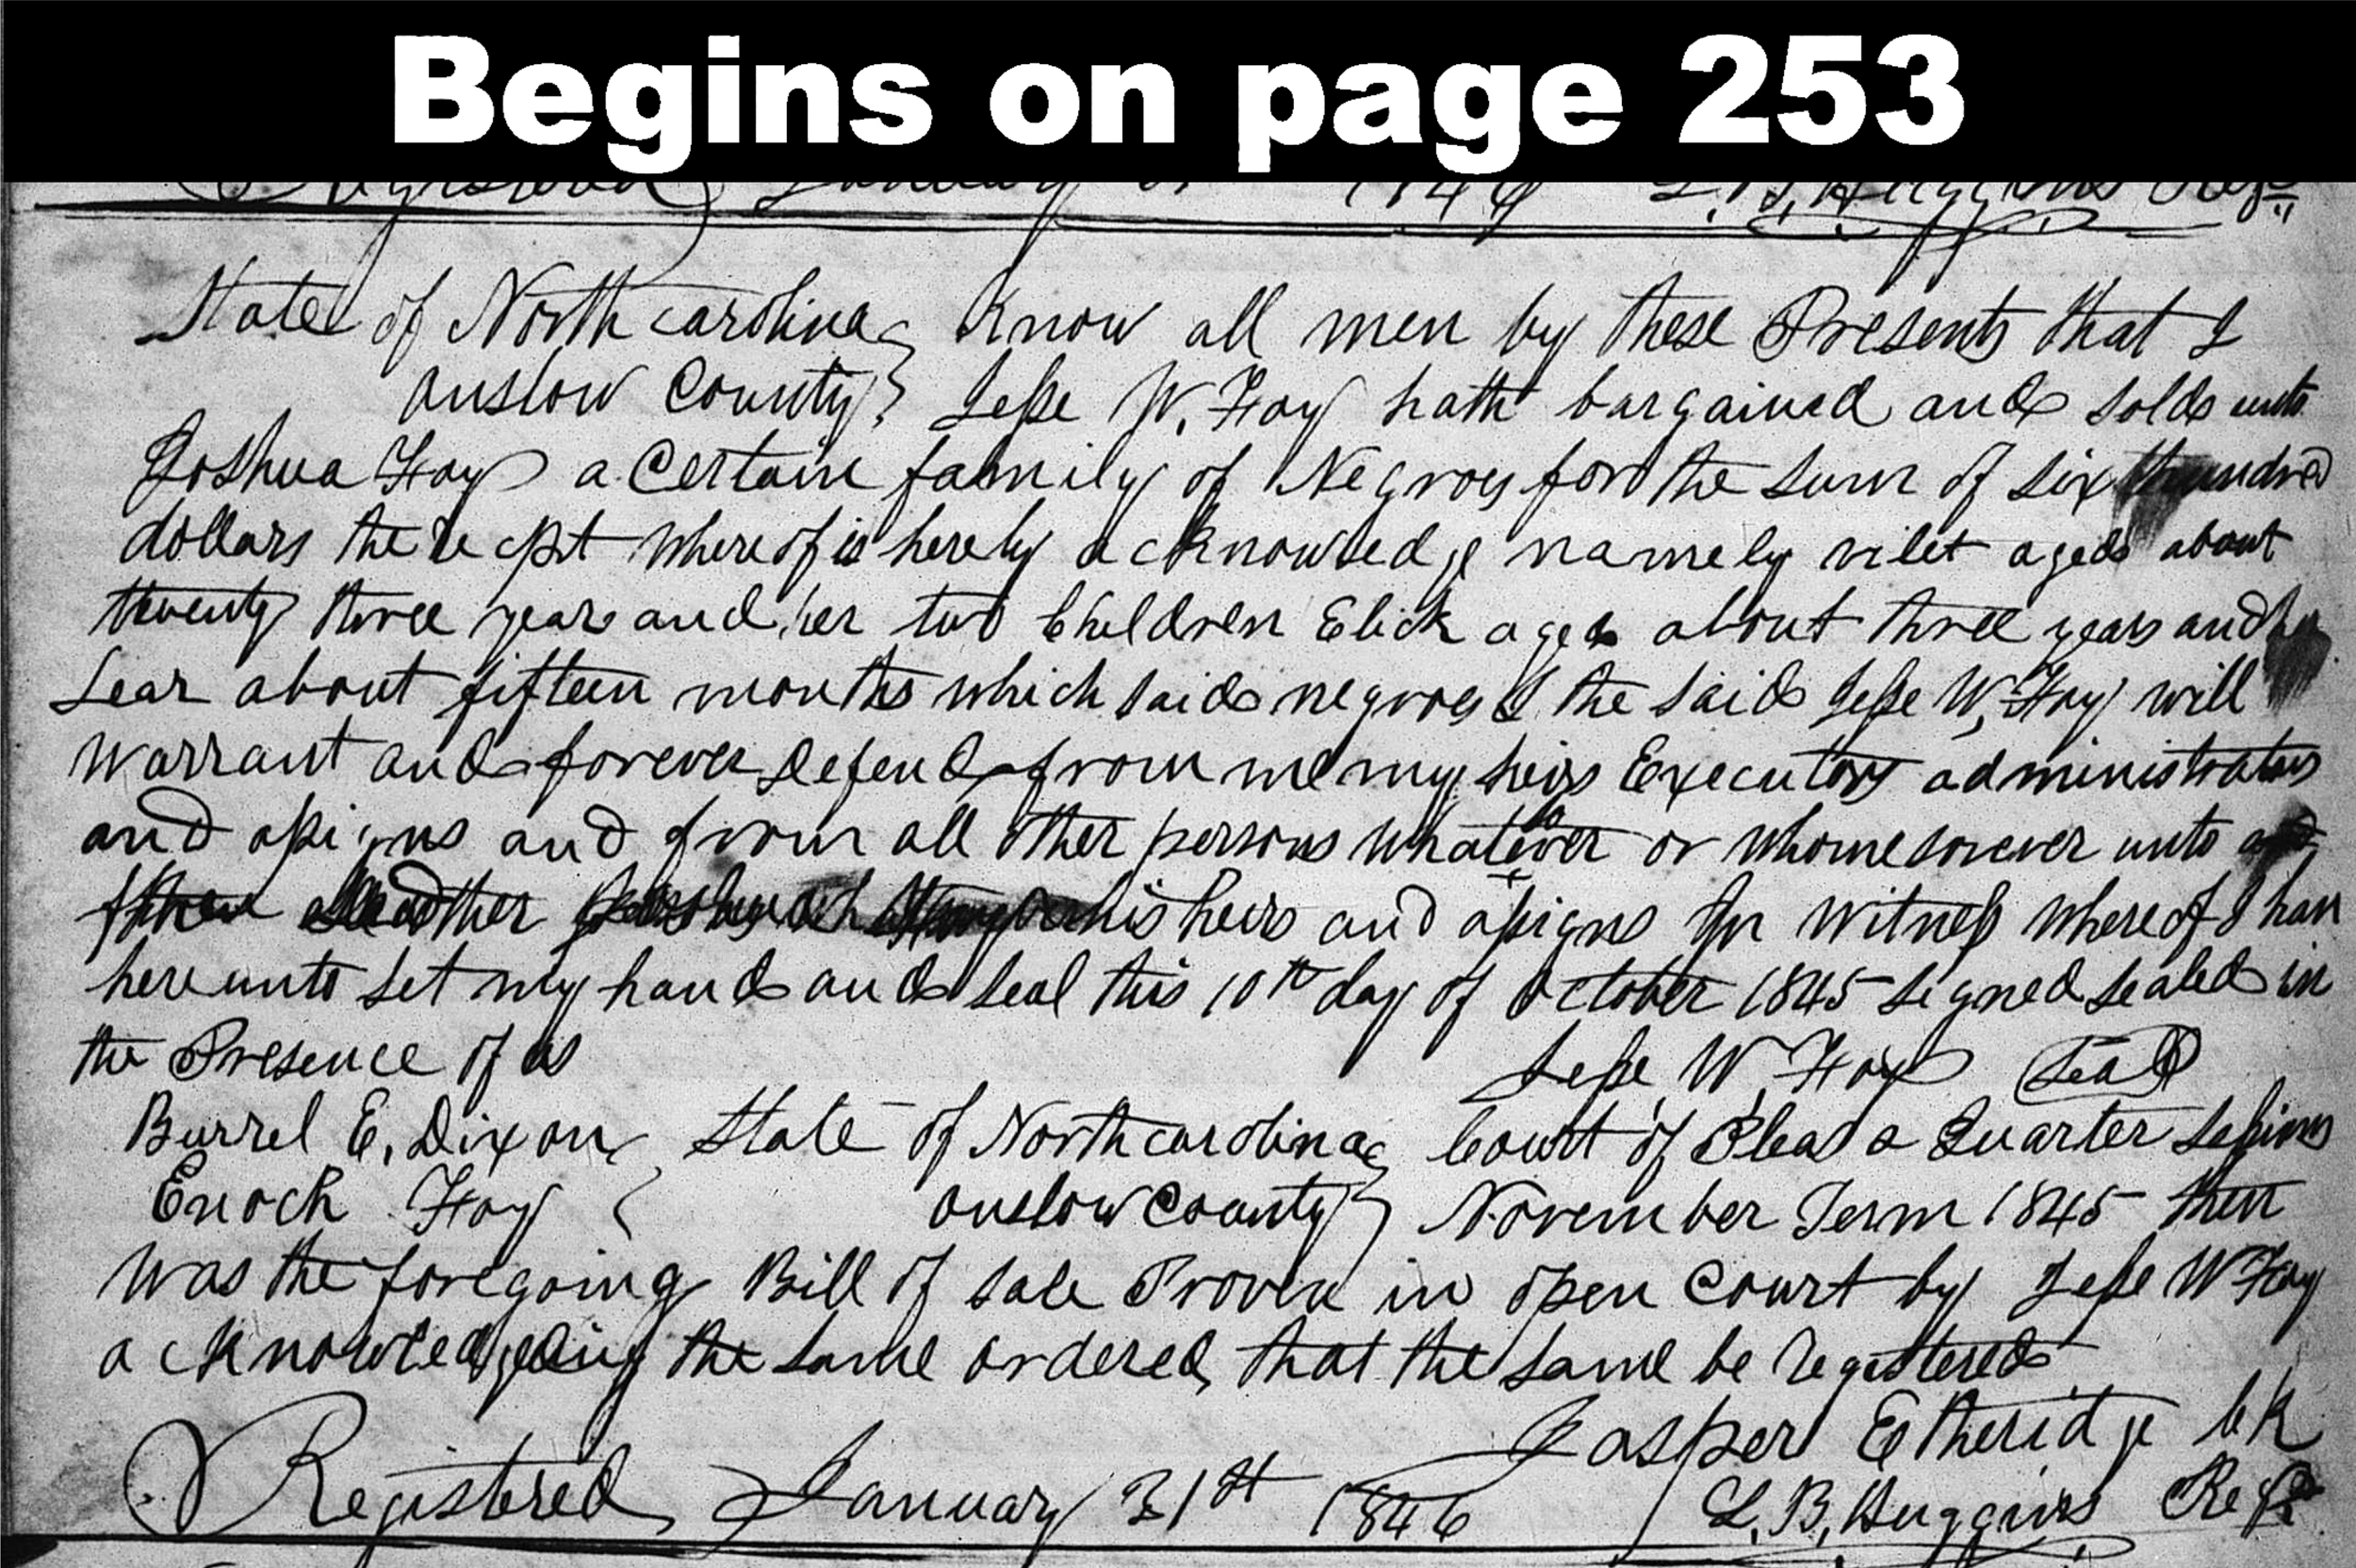 Begins on page 253
Registered January 1846 L. B. Huggins Reg
State of North carolina Know all men by these Presents that I
onslow County Jesse W. Foy hath bargained and sold unto
Joshua Foy a Certain family of Negroes for the sum of six hundred
dollars the recpt whereof is hereby acknowledge namely vilet aged about
twenty three years and her two Children Elick aged about three years and
Lear about fifteen months which said negroes I the said Jesse W. Foy will
warrant and forever defend from me my heirs Executors administrators
and assigns and from all other persons whatever or whomesoever unto
his heirs and assigns In witness whereof I hav
hereunto set my hand and seal this 10th day of October 1845 signed sealed in
the Presence of us
Jesse W. Foy Seal
Burrel E. Dixon State of North carolina Court of Pleas a Quarter Sessions
Enoch Foy onslow County November Term 1845 then
was the foregoing Bill of sale Proven in open Court by Jesse W Foy
acknowledgeing the same ordered that the same be registered
Jasper Etheridge Ck
Registered January 31st 1846 L. B. Huggins Regr